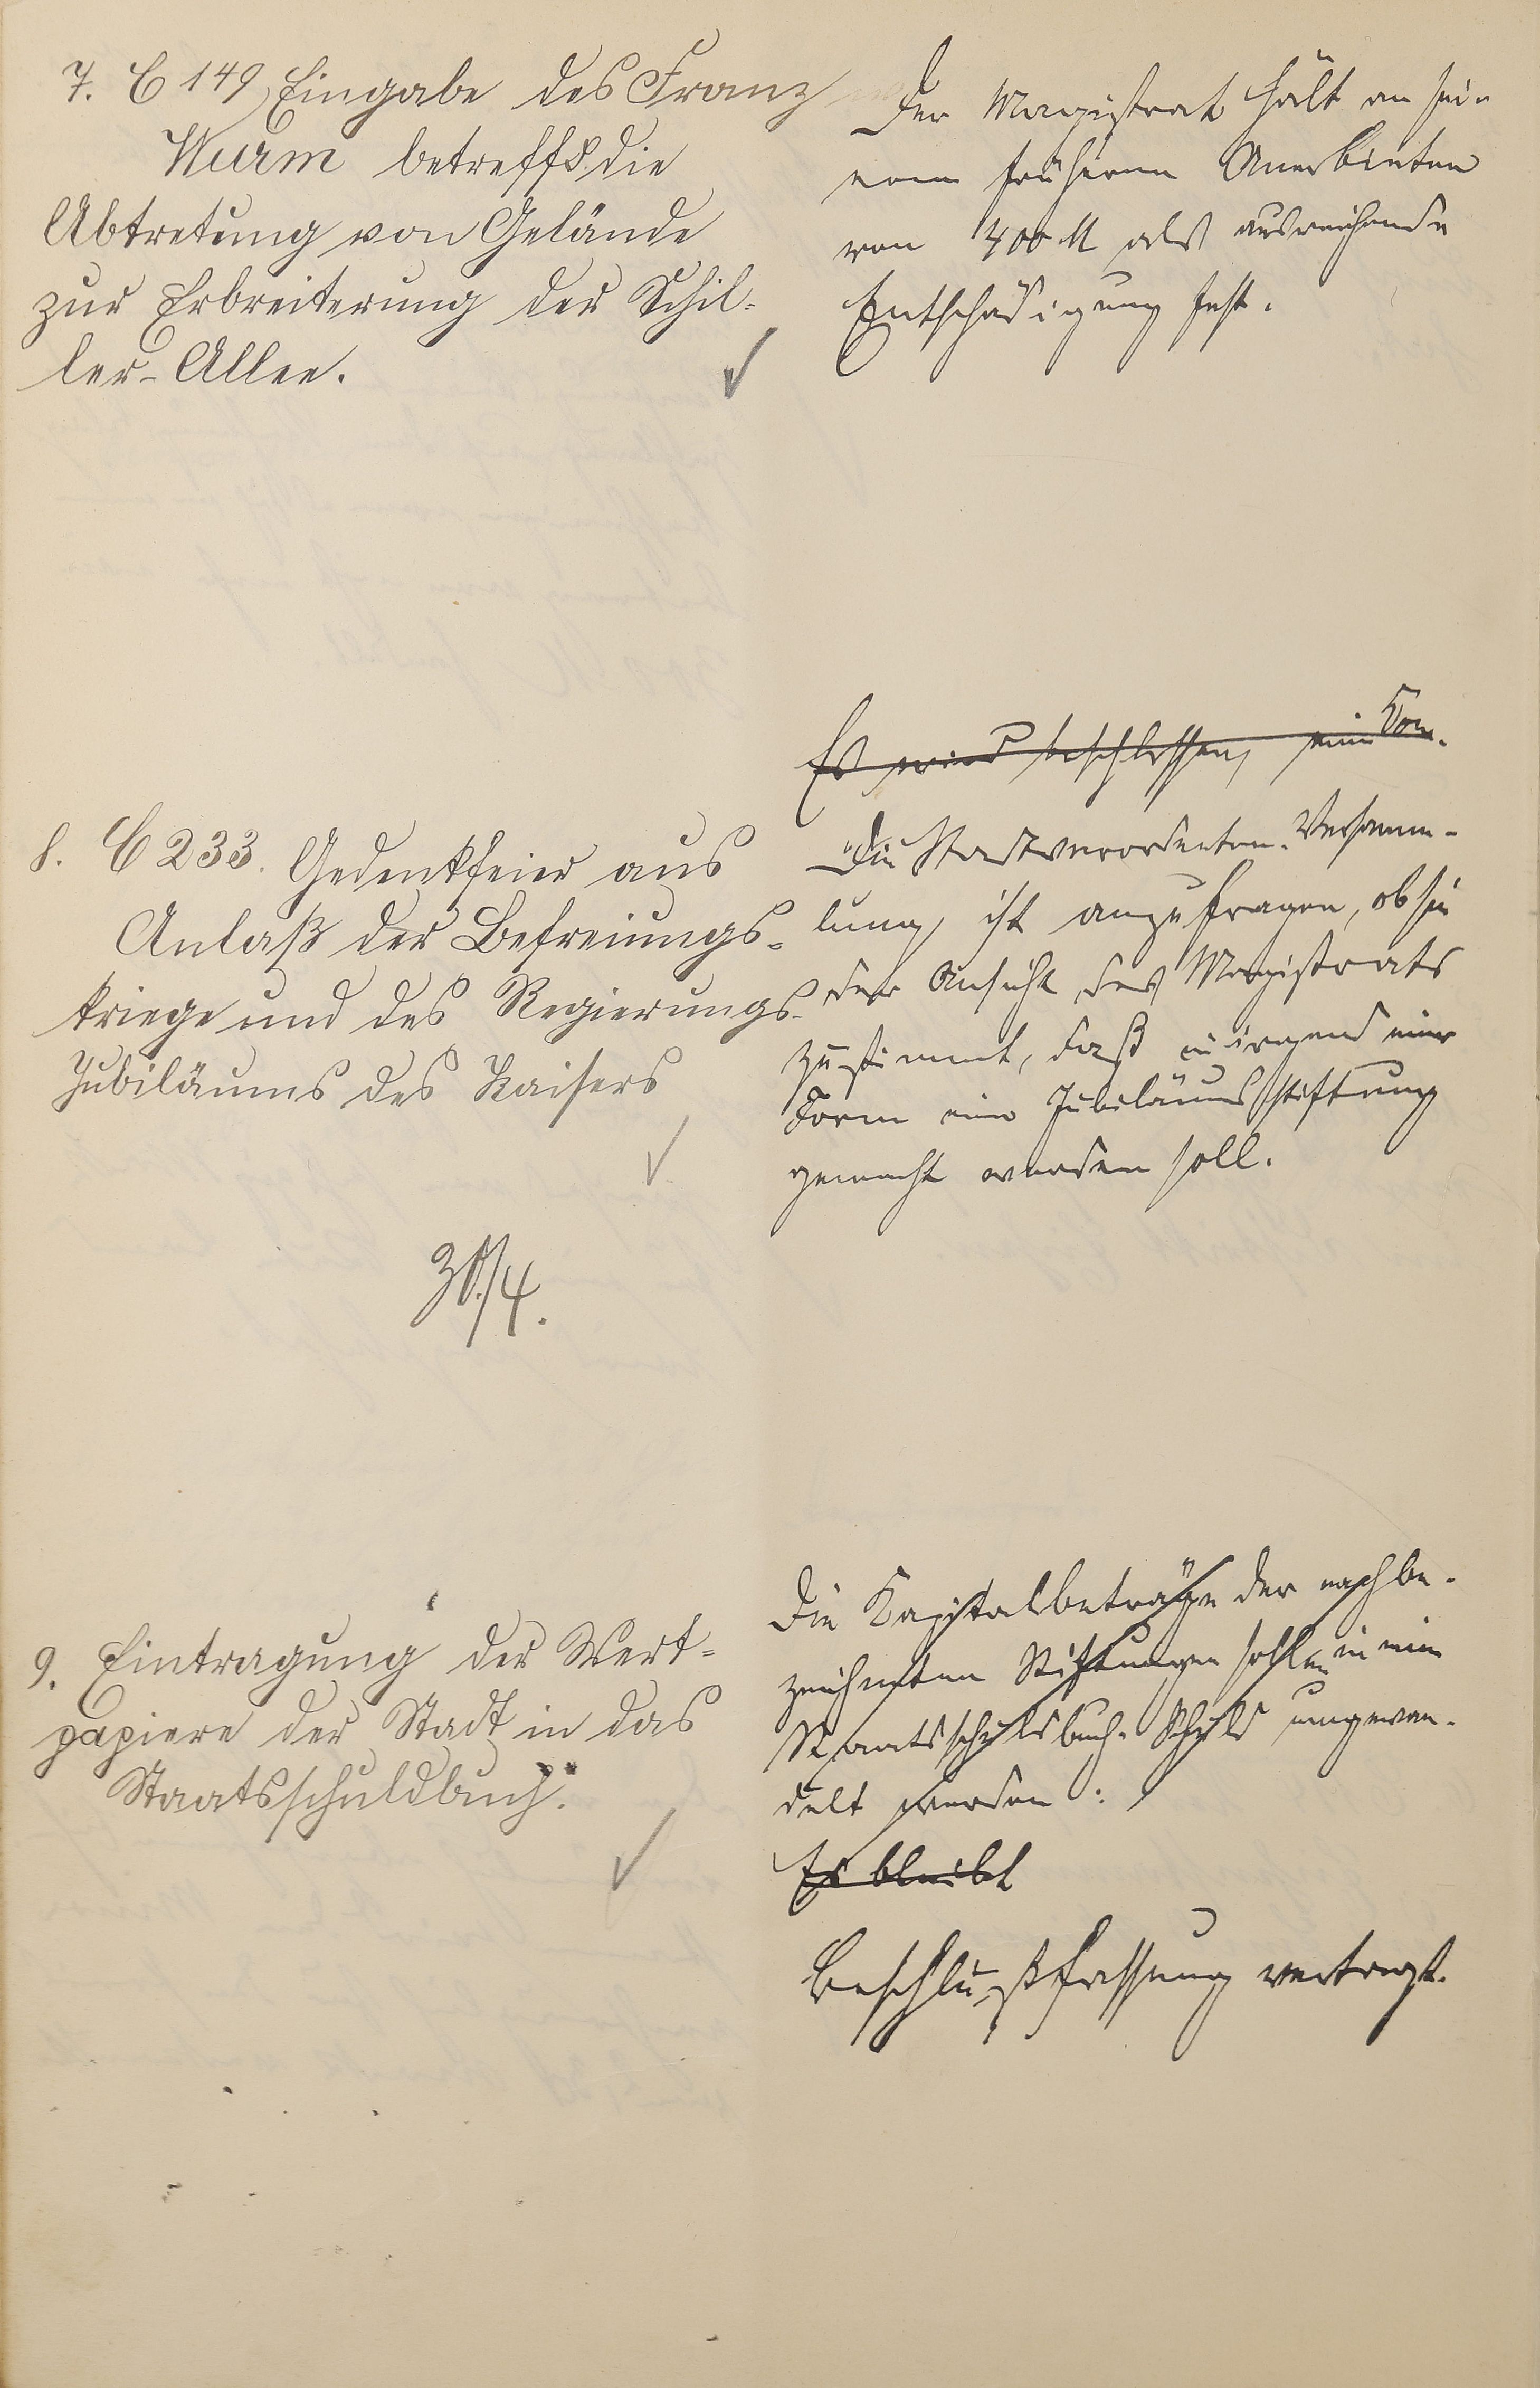 7. C 149 Eingabe des Franz
Wurm betreffs die
Abtretung von Gelände
zur Erbreiterung der Schil-
ler-Allee.
Der Magistrat hält an sei-
nem früheren Anerbieten
von 400 M als ausreichende
Entschädigung fest.
Es wird beschlossen, eine Kom-
8. C 233. Gedenkfeier aus
Anlaß der Befreiungs-
kriege und des Regierungs-
Jubiläums des Kaisers
30./4.
Die Stadtverordneten-Versamm-
lung ist anzufragen, ob sie
der Ansicht des Magistrats
zustimmt, daß in irgend einer
Form eine Jubiläumsstiftung
gemacht werden soll.
9. Eintragung der Wert-
papiere der Stadt in das
Staatsschuldbuch.
Die Kapitalbeträge der nachbe-
zeichneten Stiftungen sollen in eine
Staatsschuldbuch-Schuld umgewan-
delt werden:
Es bleibt
Beschlußfassung vertagt.